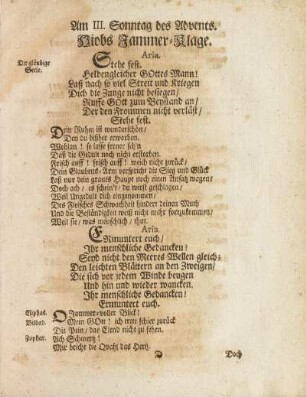 Am III. Sonntag des Advents.
Hiobs Jammer-Klage.
Aria.
Die gläubige Seele.
Stehe fest.
Heldengleicher GOttes Mann/
Laß nach so viel Streit und Kriegen
Dich die Zunge nicht besiegen/
Ruffe GOtt zum Beystand an/
Der den Frommen nicht verläst/
Stehe fest.
Dein Ruhm ist wunderschön/
Den du bißher erworben.
Wohlan! so lasse ferner sehn
Daß die Gedult noch nicht erstorben.
Frisch auff! frisch auff! weich nicht zurück/
Dein Glaubens-Arm verspricht dir Sieg und Glück
Laß nur dein gantz Hauße noch einen wagen/
Doch ach/ es schein't/ du wirst geschlagen/
Weil Ungedult dich eingenommen/
Des Fleisches Schwachheit hindert deinen Muth
Und die Beständigkeit weiß nicht mehr fortzukommen/
Weil sie/ was menschlich/ thut.
Aria.
ERmuntert euch/
Ihr menschliche Gedancken/
Seyd nicht den Meeres Wellen gleich:
Den leichten Blättern an den Zweigen/
Die sich vor jedem Winde beugen
Und hin und wieder wancken.
Ihr menschliche Gedancken/
Ermuntert euch.
Eliphas. O Jammer-voller Blick!
Bildad. Mein GOtt! ich trete schier zurück
Die Pein/ das Elend nicht zu sehen.
Zophar. Ach Schmertz!
Mir bricht die Quahl das Hertz.
D Doch